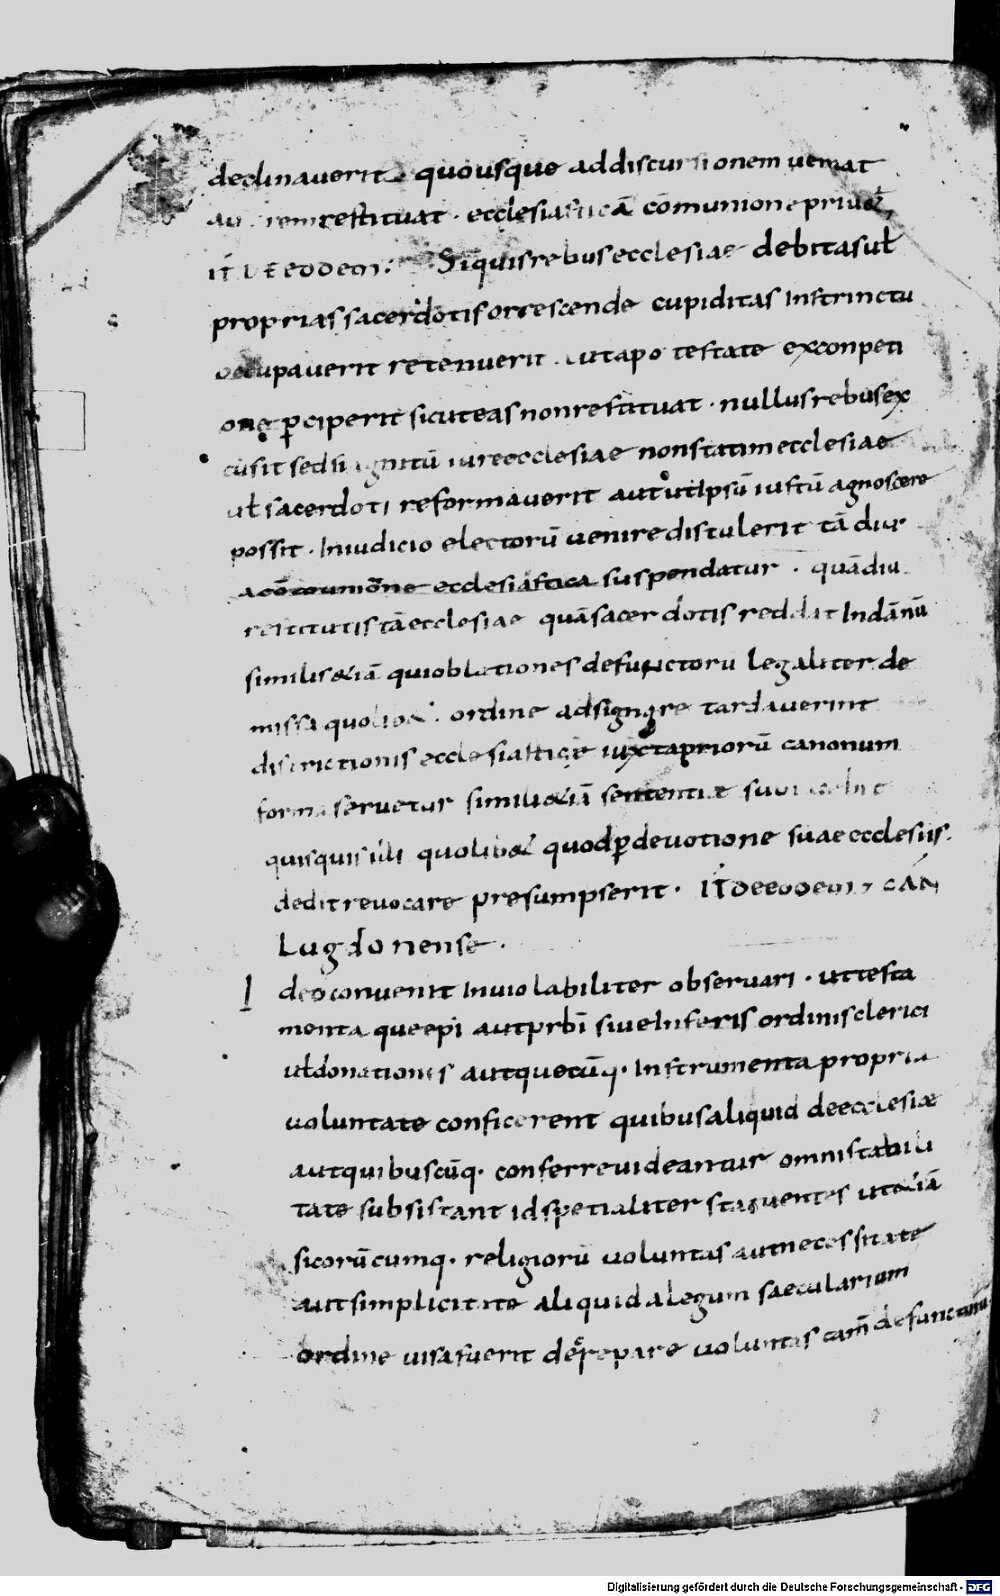 declinaverit quousque addiscursionem veniat
aut rem restituat · ecclesiasticā cōmunione privet,
IT̄ DE EODEM: Siquis rebus ecclesiae debitas ul̄
proprias sacerdotis orrescende cupiditas instrinctu
occupaverit retenuerit aut a potestate exconpeti
one p̱ciperit sicut eas non restituat · nullus rebus ex
cusit sed si agnitū iure ecclesiae non statim ecclesiae
ul̄ sacerdoti reformaverit aut ut ipsū iustū agnoscere
possit · In iudicio electorū venire distulerit tā diu
a cōmunione ecclesiastica suspendatur · quādiu
restitutis tā ecclesiae quā sacerdotis reddat Indānū
similis &iā qui oblationes defunctorū legaliter de
missa quolib& ordine adsignare tardaverint
districtionis ecclesiastice iuxta priorū canonum
forma servetur simili &iā sententiae
quisquis illi quolib& quod p̱ devotione suae ecclesiis.
dedit revocare presumpserit · IT̄ DE EODEM, CAN̄
Lugdonense ·
I deo convenit Inviolabiliter observari · ut testa
menta que epī aut prb̄i sive Inferis ordinis clerici
ul̄ donationis aut quecūq· Instrumenta propria
voluntate conficerent quibus aliquid de ecclesiae
aut quibuscūq· conferre videantur omni stabili
tate subsistant id spetialiter statuentes ut &iā
sicorū cumq· religiorū voluntas aut necessitate
aut simplicitate aliquid a legum saecularium
ordine visa fuerit derepare voluntas tam̄ defunctorū